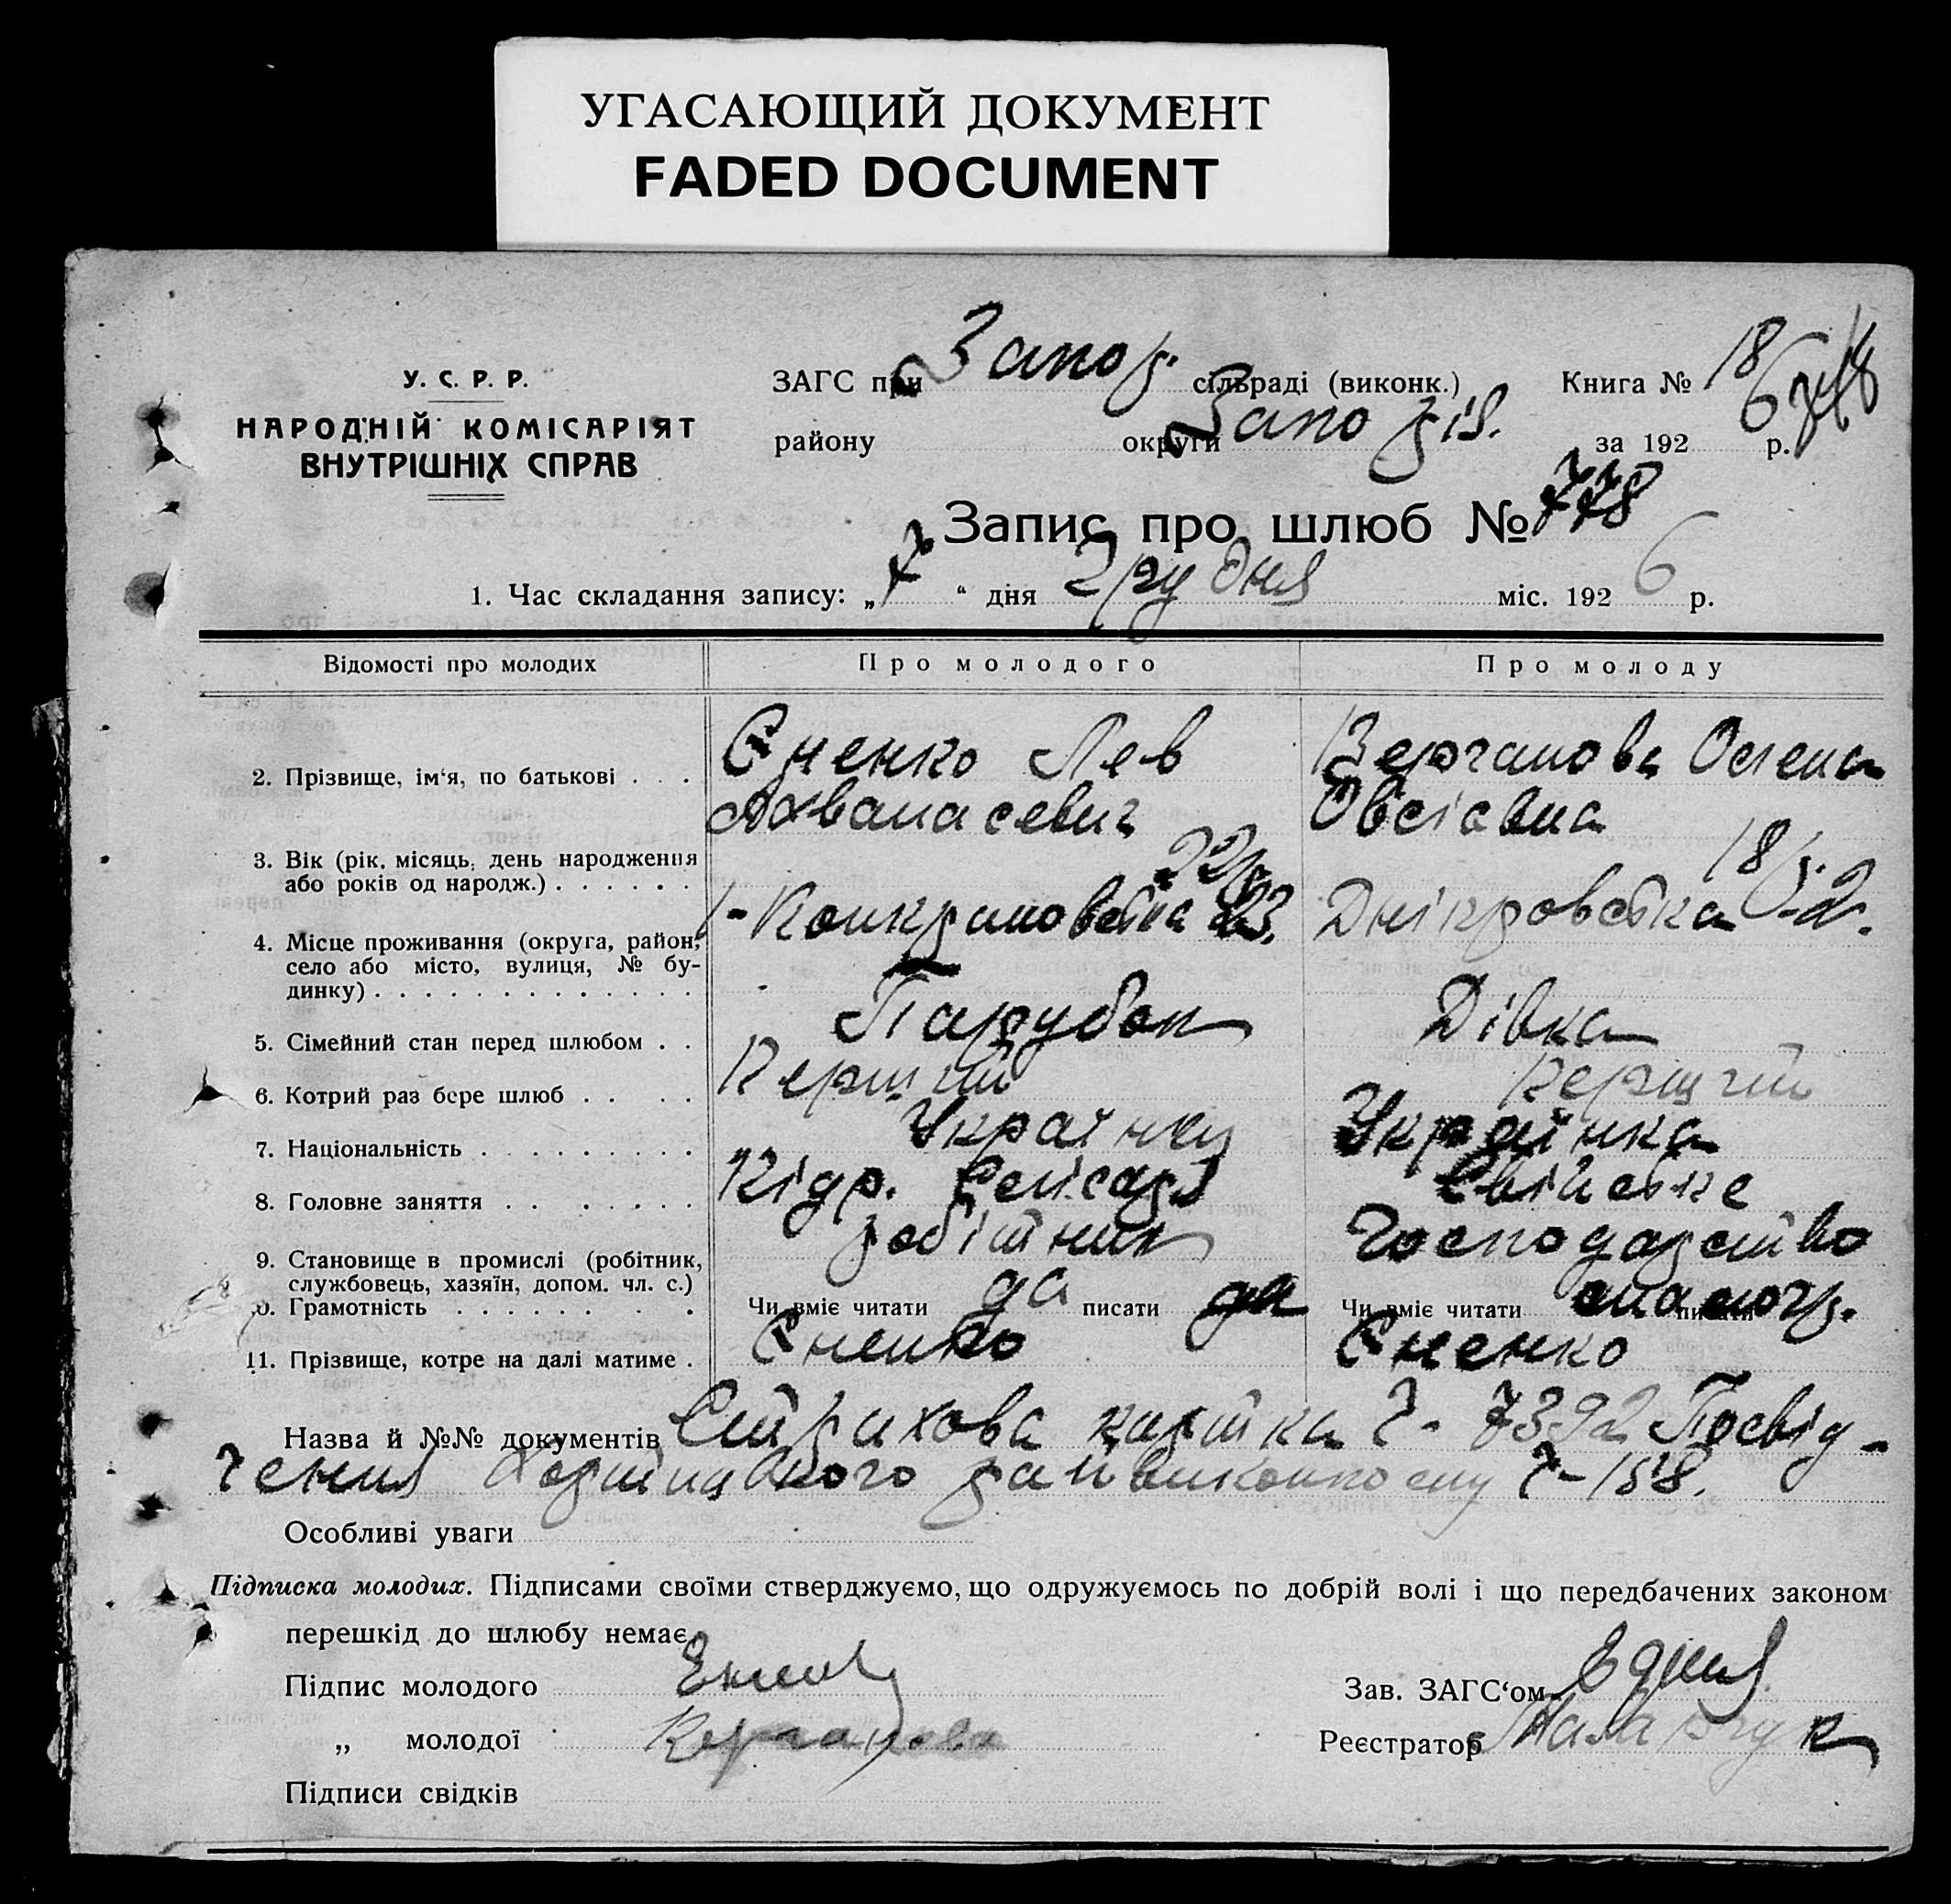 УГАСАЮЩИЙ ДОКУМЕНТ
FADED DOCUMENT
У. С. Р. Р.
НАРОДНІЙ КОМІСАРІЯТ
ВНУТРІШНІХ СПРАВ
ЗАГС при Запор. сільраді (виконк.) Книга № 18
району округи Запоріз. за 192 6 р.
Запис про шлюб № 778
1. Час складання запису: „ 7 “ дня Грудня міс. 192 6 р.
Відомості про молодих Про молодого Про молоду
2. Прізвище, ім‘я, по батькові . . . Єненко Лев Верчанова Олена
Овсіевна
3. Вік (рік, місяць, день народження 22 18
або років од народж.) . . . . . .
4. Місце проживання (округа, район, 23. Дніпровська 2.
село або місто, вулиця, № бу-
динку) . . . . . . . . . . . . .
5. Сімейний стан перед шлюбом . . Парубок Дівка
6. Котрий раз бере шлюб . . . . Перший Перший
7. Національність . . . . . . . . . Українец Українка
8. Головне заняття . . . . . . . Свійське
9. Становище в промислі (робітник, робітник господарство
службовець, хазяїн, допом. чл. с.)
0. Грамотність . . . . . . . . Чи вміє читати да писати да Чи вміє читати писати
11. Прізвище, котре на далі матиме . Єненко Єненко
Назва й №№ документів Страхова картка Ч- 7392 Посвід-
чення райвиконкому Ч-158.
Особливі уваги
Підписка молодих. Підписами своїми стверджуємо, що одружуємось по добрій волі і що передбачених законом
перешкід до шлюбу немає.
Підпис молодого Зав. ЗАГС‘ом
„ молодої Верчанова Реєстратор
Підписи свідків